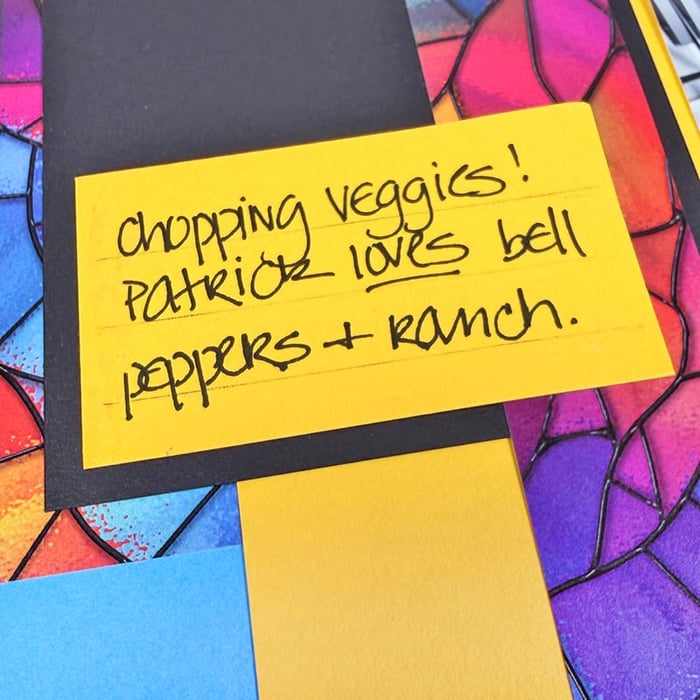 chopping veggies!
Patrick loves bell
peppers + Ranch.